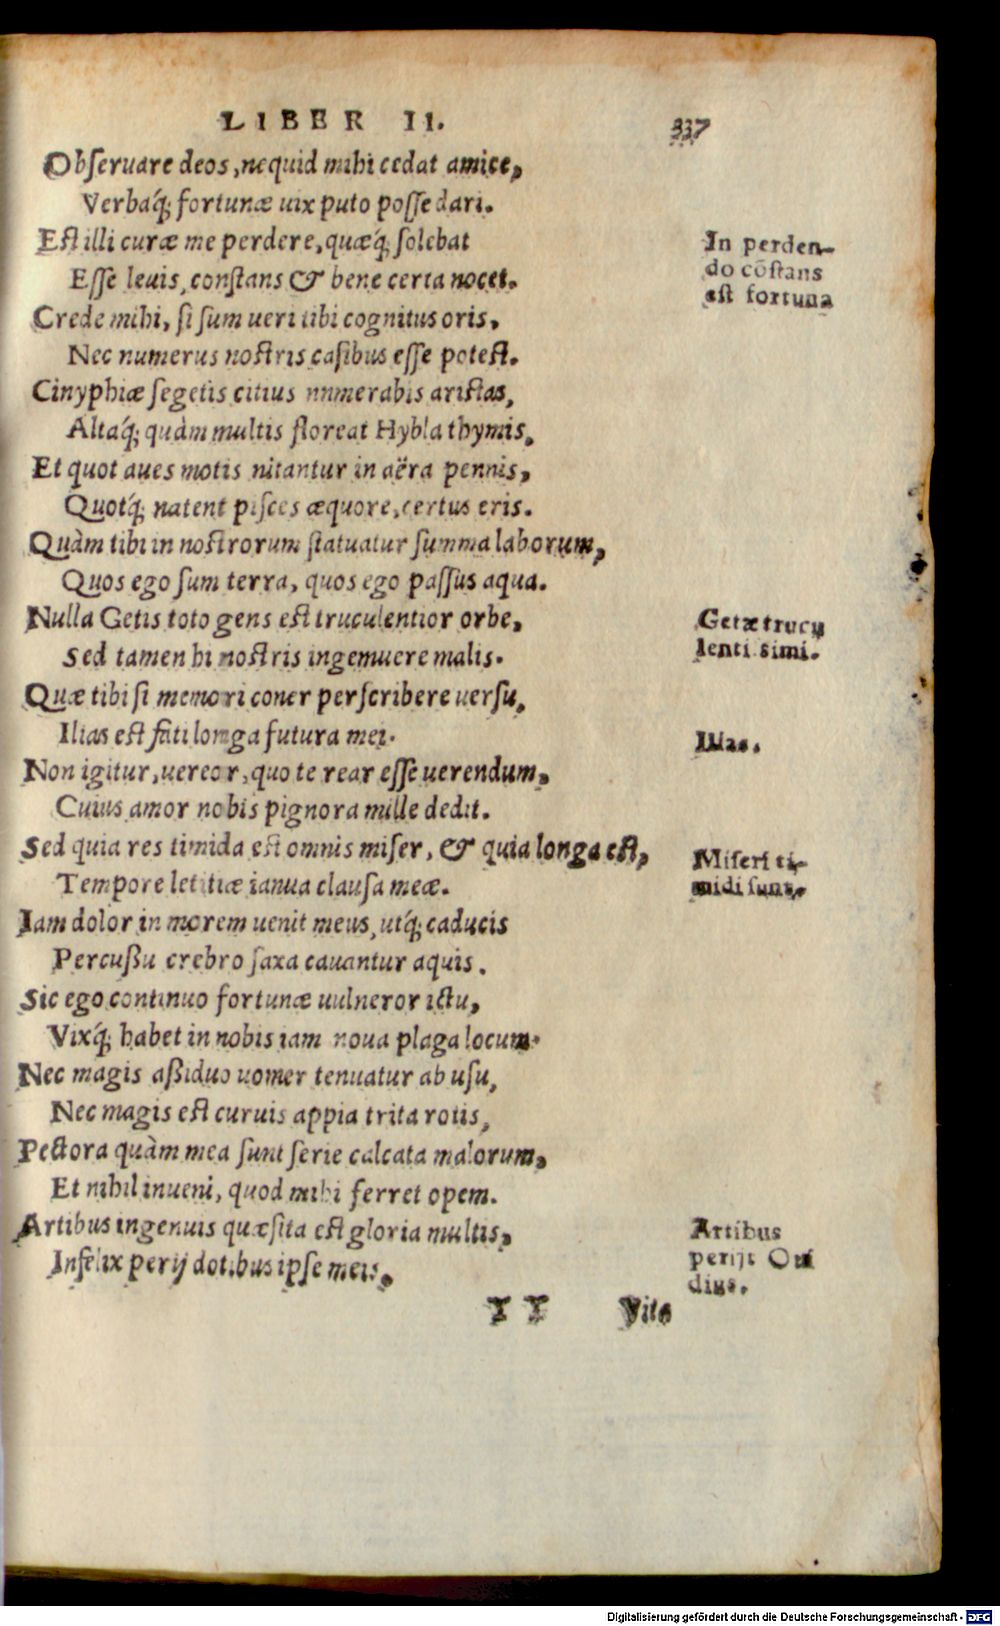 LIBER II.
337
Obſeruare deos, nequid mihi cedat amice,
Verbaq́; fortunæ uix puto poſſe dari.
Eſt illi curæ me perdere, quæq́; ſolebat
Eſſe leuis, conſtans & bene certa nocet.
In perden-
do cõſtans
eſt fortuna
Crede mihi, ſi ſum ueri tibi cognitus oris,
Nec numerus noſtris caſibus eſſe poteſt.
Cinyphiæ ſegetis citius numerabis ariſtas,
Altaq́; quàm multis floreat Hybla thymis,
Et quot aues motis nitantur in aëra pennis,
Quotq́; natent piſces æquore, certus eris.
Quàm tibi in noſtrorum ſtatuatur ſumma laborum,
Quos ego ſum terra, quos ego paſſus aqua.
Nulla Getis toto gens eſt truculentior orbe,
Sed tamen hi noſtris ingemuere malis.
Getæ trucu
lenti simi.
Quæ tibi ſi memori coner perſcribere uerſu,
Ilias eſt fati longa futura mei.
Ilias.
Non igitur, uereor, quo te rear eſſe uerendum,
Cuius amor nobis pignora mille dedit.
Sed quia res timida eſt omnis miſer, & quia longa eſt,
Tempore letitiæ ianua clauſa meæ.
Miſeri ti-
midi ſunt.
Iam dolor in morem uenit meus, utq́; caducis
Percußu crebro ſaxa cauantur aquis.
Sic ego continuo fortunæ uulneror ictu,
Vixq́; habet in nobis iam noua plaga locum.
Nec magis aßiduo uomer tenuatur ab uſu,
Nec magis eſt curuis appia trita rotis,
Pectora quàm mea ſunt ſerie calcata malorum,
Et nihil inueni, quod mihi ferret opem.
Artibus ingenuis quæſita eſt gloria multis,
Infelix perij dotibus ipſe meis,
Artibus
perijt Oui
dius.
TT Vite
Digitalisierung gefördert durch die Deutsche Forschungsgemeinschaft - DFG